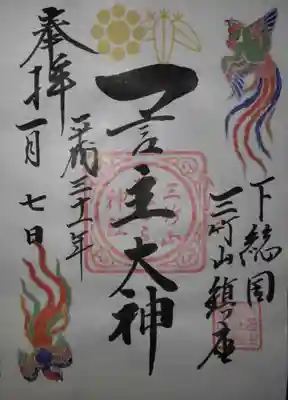 下総国
三竹山鎮座
一言主大神
平成三十一年
一月七日
奉拝